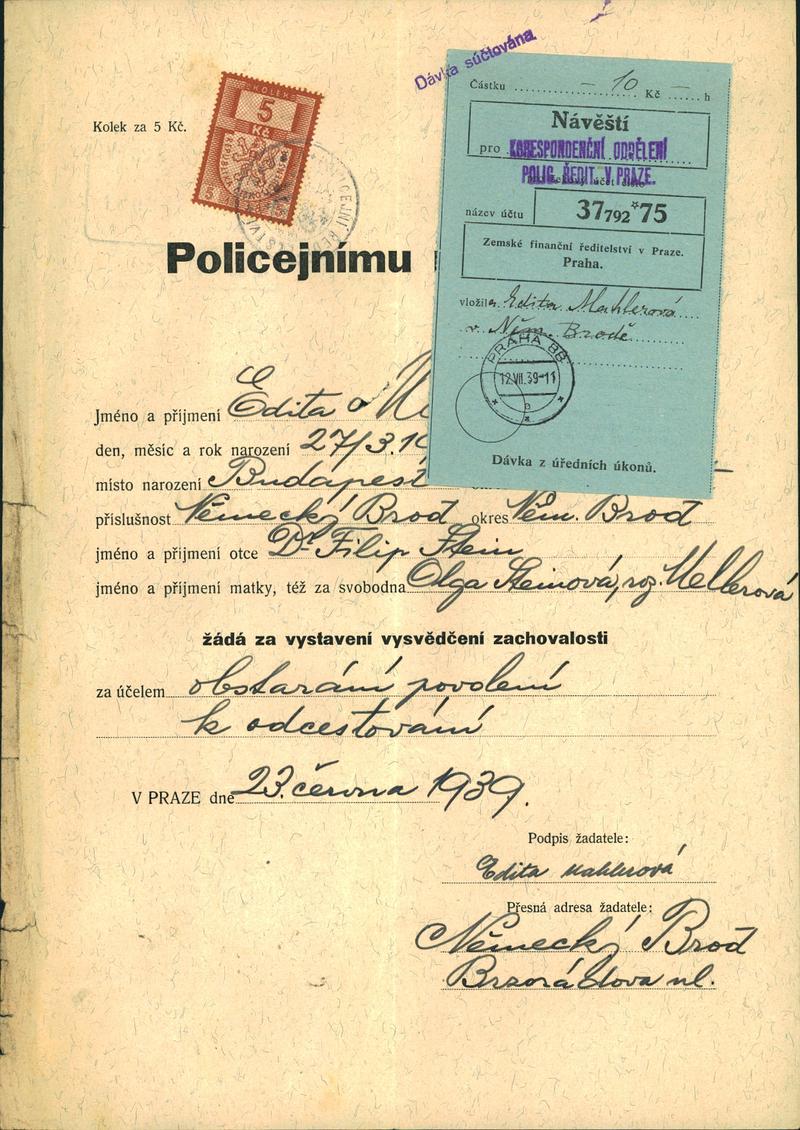 Dávka súčtována.
Kolek za 5 Kč.
KOLEK
5
Kč
Částku – 10 Kč – h
Návěští
pro KORESPONDENČNÍ ODDĚLENÍ
POLIC. ŘEDIT. V PRAZE.
název účtu 37792*75
Zemské finanční ředitelství v Praze.
Praha.
vložila Edita Mahlerová
v Něm. Brodě
PRAHA 88
12.VII.39-11
Dávka z úředních úkonů.
Policejnímu
Jméno a příjmení Edita
den, měsíc a rok narození 27/3.19
místo narození Budapest
příslušnost Německý Brod okres Něm. Brod
jméno a příjmení otce Dr. Filip Stein
jméno a příjmení matky, též za svobodna Olga Steinová, roz. Mellerová
žádá za vystavení vysvědčení zachovalosti
za účelem obstarání povolení
k odcestování
V PRAZE dne 23. června 1939.
Podpis žadatele:
Edita Mahlerová
Přesná adresa žadatele:
Německý Brod
Brzorádova ul.